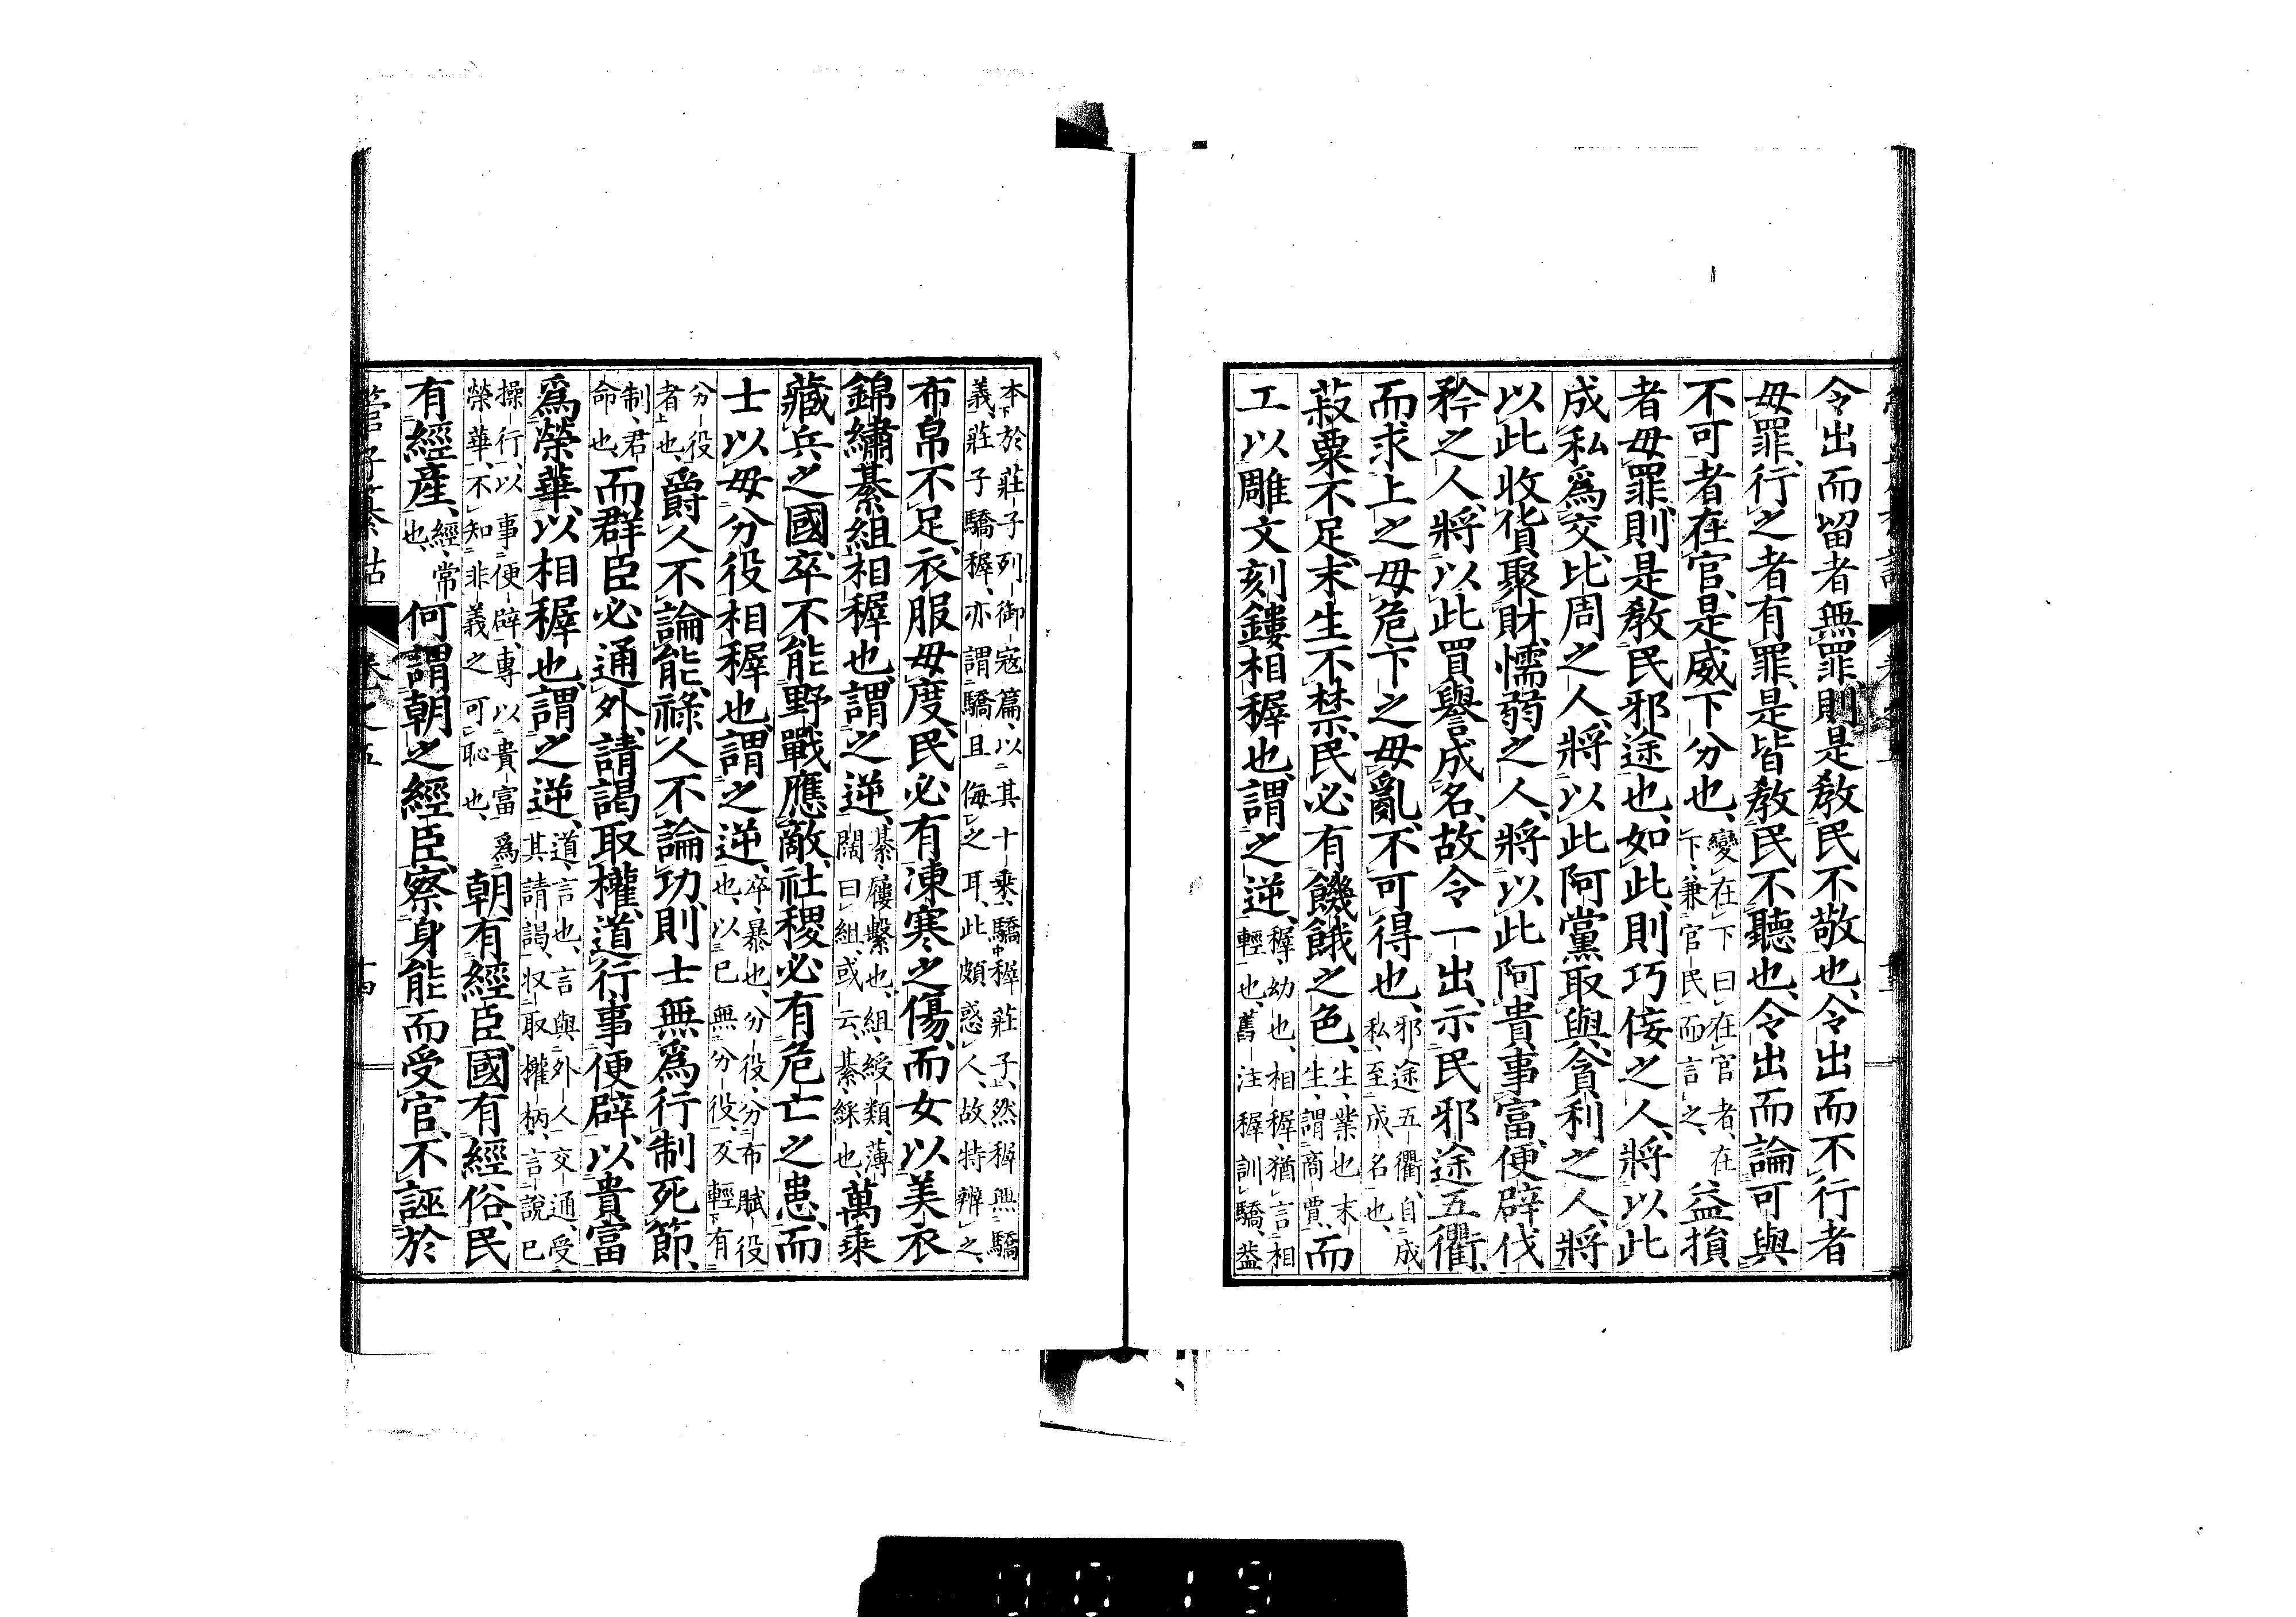 令出而留者無罪則是敎民不敬也令出而不行者
毋罪行之者有罪是皆敎民不聽也令出而論可與
不可者在官是威下分也變在下曰在官者在下兼官民而言之益損
者毋罪則是敎民邪途也如此則巧佞之人將以此
成私爲交比周之人將以此阿黨取與貪利之人將
以此收貨聚財懦弱之人將以此阿貴事富便辟伐
矜之人將以此買譽成名故令一出示民邪途五衢
而求上之毋危下之毋亂不可得也邪途五衢自成私至成名也
菽粟不足末生不禁民必有饑餓之色生業也末生謂商賈而
工以雕文刻鏤相穉也謂之逆穉幼也相穉猶言相輕也舊注穉訓驕益
本於莊子列御寇篇以其十乘驕穉莊子然穉無驕義莊子驕穉亦謂驕且侮之耳此頗惑人故特辨之
布帛不足衣服毋度民必有凍寒之傷而女以美衣
錦繡綦組相穉也謂之逆綦屨繫也組綬類薄闊曰組或云綦綵也萬乘
藏兵之國卒不能野戰應敵社稷必有危亡之患而
士以毋分役相穉也謂之逆卒暴也分役分布賦役也以已無分役反輕有
分役者也爵人不論能祿人不論功則士無爲行制死節
制君命也而群臣必通外請謁取權道行事便辟以貴富
爲榮華以相穉也謂之逆道言也言與外人交通受其請謁収取權柄言說已
操行以事便辟專以貴富爲榮華不知非義之可恥也朝有經臣國有經俗民
有經產經常也何謂朝之經臣察身能而受官不誣於
管子纂詁 卷之五 十四
0019